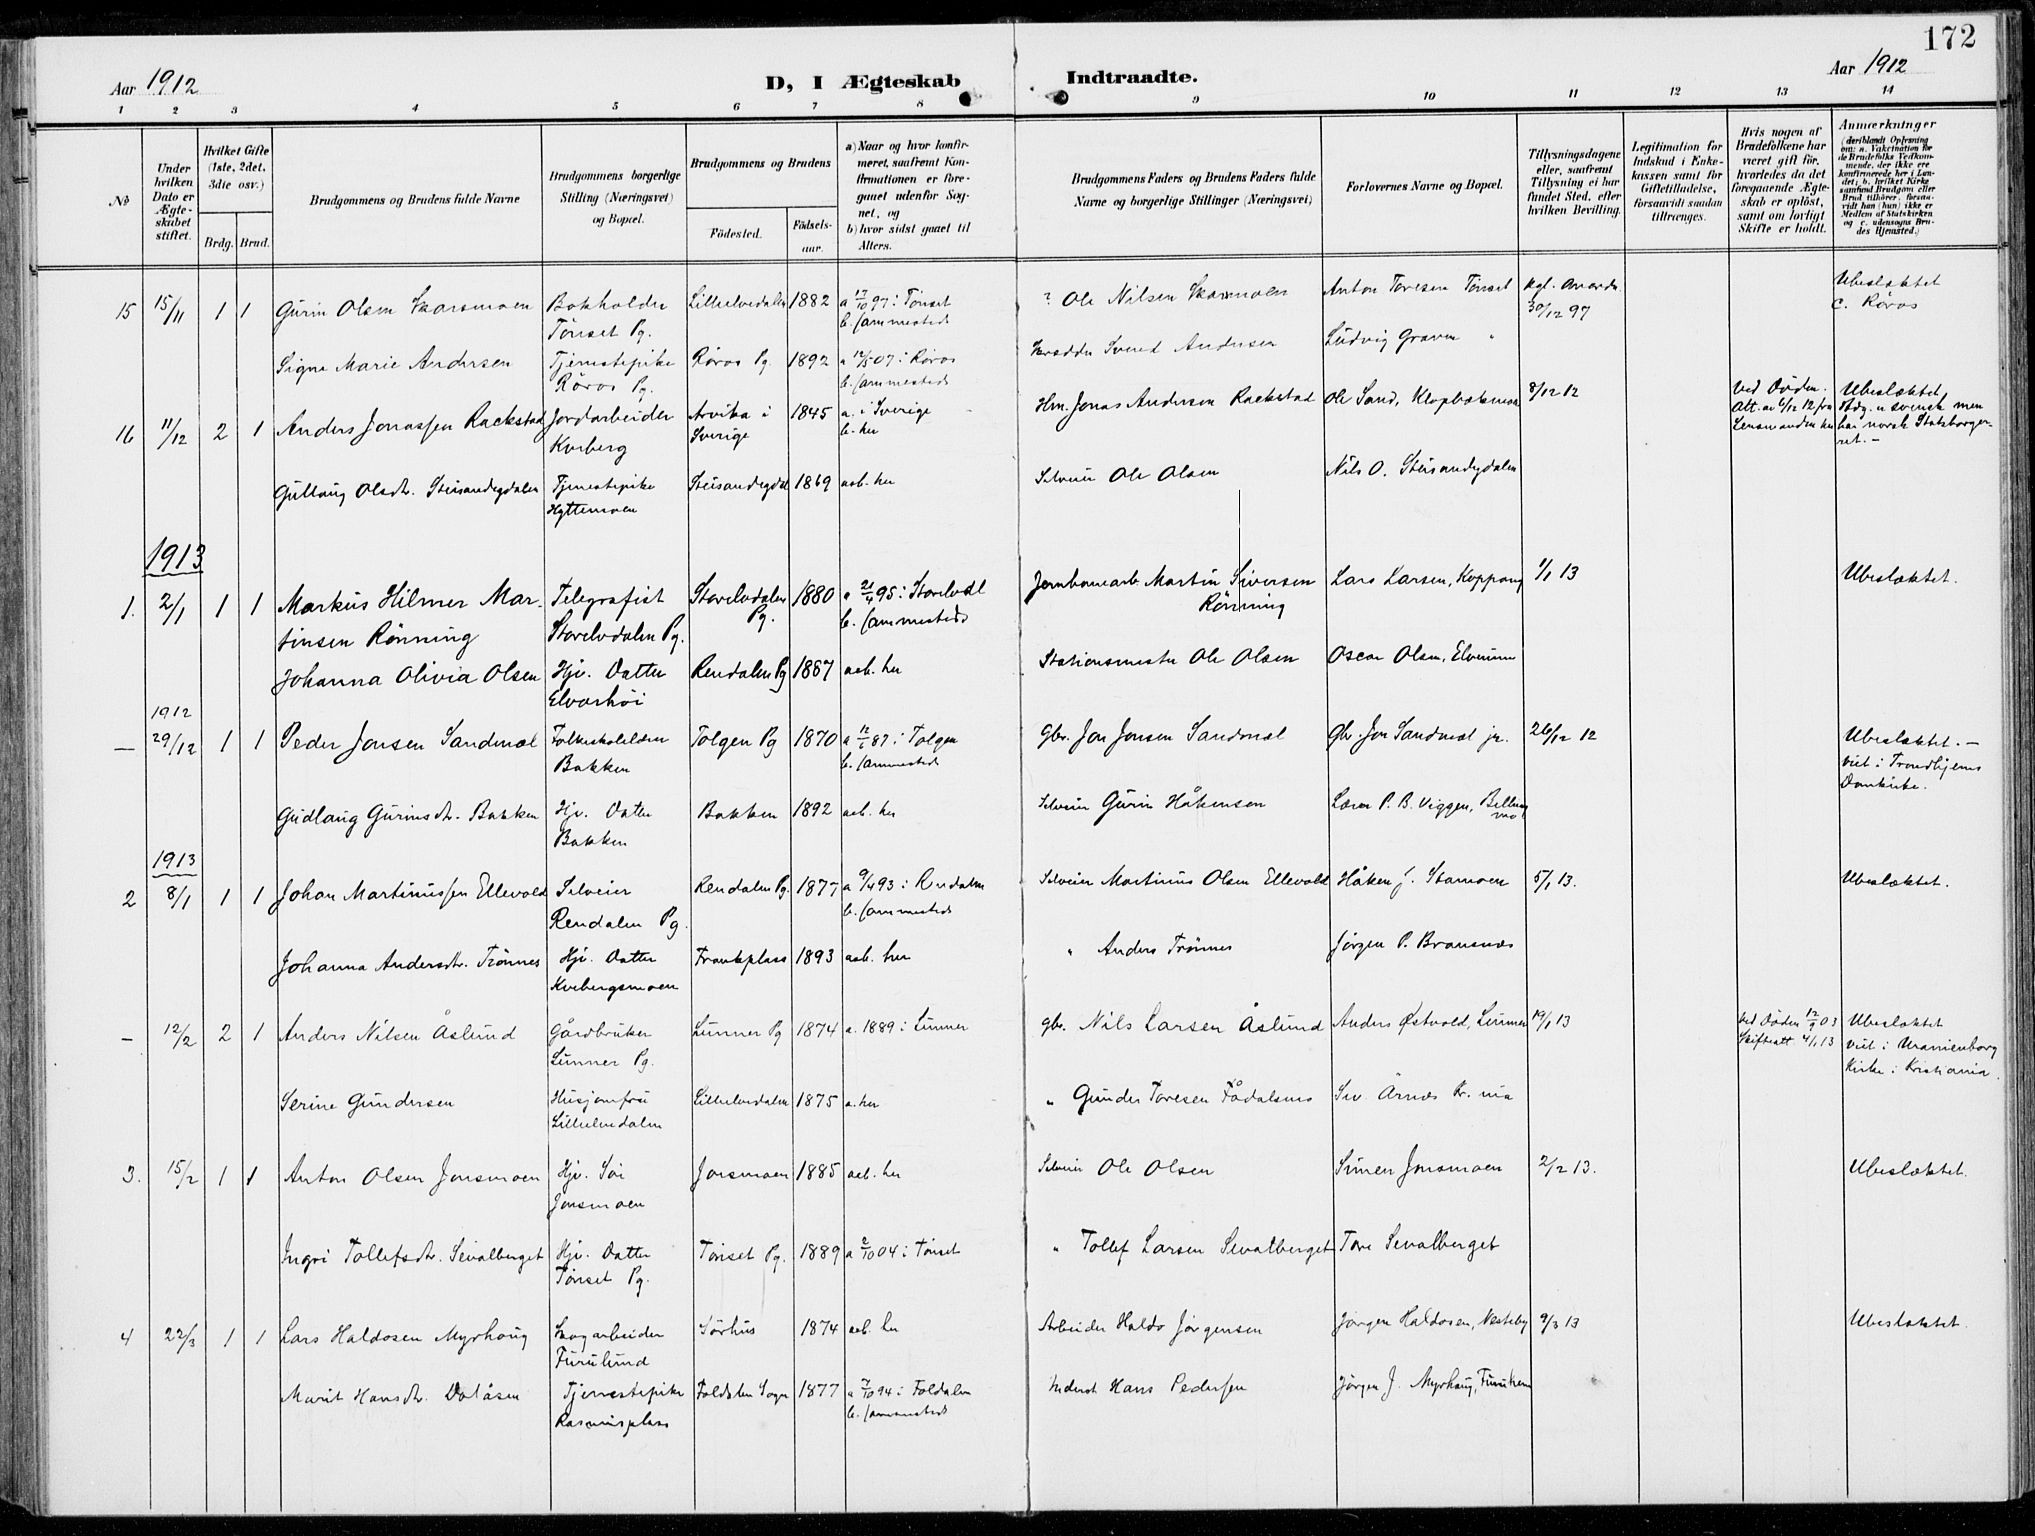 172
Aar 1912
D, I Ægteskab Indtraadte.
Aar 1912
1 2 3 4 5 6 7 8 9 10 11 12 13 14
No
Under hvilken Dato er Ægteskabet stiftet.
Hvilket Gifte (1ste, 2det, 3die osv.)
Brdg. Brud.
Brudgommens og Brudens fulde Navne
Brudgommens borgerlige Stilling (Næringsvei) og Bopæl.
Brudgommens og Brudens
Födested. Födselsaar.
a) Naar og hvor konfirmeret, saafremt Konfirmationen er foregaaet udenfor Sognet, og
b) hvor sidst gaaet til Alters.
Brudgommens Faders og Brudens Faders fulde Navne og borgerlige Stillinger (Næringsvei)
Forlovernes Navne og Bopæl.
Tillysningsdagene eller, saafremt Tillysning ei har fundet Sted, efter hvilken Bevilling.
Legitimation for Indskud i Enkekassen samt for Giftetilladelse, forsaavidt saadan tiltrænges.
Hvis nogen af Brudefolkene har været gift för, hvorledes da det foregaaende Ægteskab er oplöst, samt om lovligt Skifte er holdt.
Anmærkninger
(deriblandt Oplysning om: a. Vakcination for de Brudefolks Vedkommende, der ikke ere konfirmerede her i Landet; b. hvilket Kirkesamfund Brudgom eller Brud tilhörer, forsaavidt han (hun) ikke er Medlem af Statskirken og c. udensogns Brudes Hjemsted.)
15 15/11 1 1 Gurin Olsen Skarsmoen Bokholder Tönset Pg. Lilleelvedalen 1882 a 17/10 97 i Tönset b. sammesteds ? Ole Nilsen Skarsmoen Anton Toresen Tönset Kgl. Anordn. 30/12 97 Ubeslægtet c. Röros
Signe Marie Andersen Tjenestepike Röros Pg. Röros Pg. 1892 a 12/5 07 i Röros b. sammesteds Skrædder Svend Andersen Ludvig Graven "
16 11/12 2 1 Anders Jonassen Rackstad Jordarbeider Kveberg Arvika i Sverige 1845 a. i Sverige b. her Hm. Jonas Andersen Rackstad Ole Sand, Klopbækmoen 8/12 12 Ved Döden. Att. av 6/12 12 fra Lensmanden her Ubeslægtet, Bdg. er svensk men har norsk Statsborgerret. -
Gullaug Olsdtr. Steisandegdalen Tjenestepike Hyttemoen Steisandegdal 1869 aob. her Selveier Ole Olsen Nils O. Steisandegdalen
1913
1. 2/1 1 1 Markus Hilmer Martinsen Rönning Telegrafist Storelvdalen Pg. Storelvdalen Pg. 1880 a 21/4 95 i Storelvdl b. sammesteds Jernbanearb. Martin Siversen Rönning Lars Larsen, Koppang 1/1 13 Ubeslægtet.
Johanna Olivia Olsen Hjv. Datter Elvarhöi Rendalen Pg 1887 aob. her Stationsmester Ole Olsen Oscar Olsen, Elverum
1912
— 29/12 1 1 Peder Jonsen Sandmæl Folkeskolelærer Bakken Tolgen Pg 1870 a 12/6 87 i Tolgen b. sammesteds Gbr. Jon Jonsen Sandmæl Gbr. Jon Sandmæl jr. 26/12 12 Ubeslægtet. — Viet i Trondhjems Domkirke.
Gudlaug Gurinsdtr. Bakken Hjv. Datter Bakken Bakken 1892 aob. her Selveier Gurin Håkensen Lærer P. B. Viggen,
1913
2 8/1 1 1 Johan Martinussen Ellevold Selveier Rendalen Pg. Rendalen Pg. 1877 a 9/4 93 i Rendalen b. sammesteds Selveier Martinus Olsen Ellevold Håken J. Stamoen 5/1 13. Ubeslægtet.
Johanna Andersdtr. Trönnes Hjv. Datter Kvebergsmoen Frankplass 1893 aob. her " Anders Trönnes Jörgen P. Bransnæs
— 12/2 2 1 Anders Nilsen Åslund Gårdbruker Lunner Pg. Lunner Pg 1874 a. 1889 i Lunner gbr. Nils Larsen Åslund Anders Østvold, Lunner 19/1 13 Ved Döden 12/9 03 Skifteatt 4/1 13 Ubeslægtet viet i Uranienborg Kirke i Kristiania.
Serine Gundersen Husjomfru Lilleelvedalen Lilleelvedalen 1875 a. her " Gunder Toresen Fådalsmo Sev. Årnæs Kr.nia
3. 15/2 1 1 Anton Olsen Jonsmoen Hjv. Sön Jonsmoen Jonsmoen 1885 aob. her Selveier Ole Olsen Simen Jonsmoen 2/2 13. Ubeslægtet.
Ingri Tollefsdtr. Sevalberget Hjv. Datter Tönset Pg. Tönset Pg. 1889 a 2/10 04 i Tönset " Tollef Larsen Sevalberget Tore Sevalberget
4 22/3 1 1 Lars Haldosen Myrhaug Skogarbeider Furulund Sörhus 1874 aob. her Arbeider Haldo Jörgensen Jörgen Haldosen, Nesteby 9/3 13 Ubeslægtet.
Marit Hansdtr. Dalåsen Tjenestepike Rasmusplass Foldalen Sogn 1877 a 7/10 94 i Foldalen b. sammesteds Inderst Hans Pedersen Jörgen J. Myrhaug, Furuheim